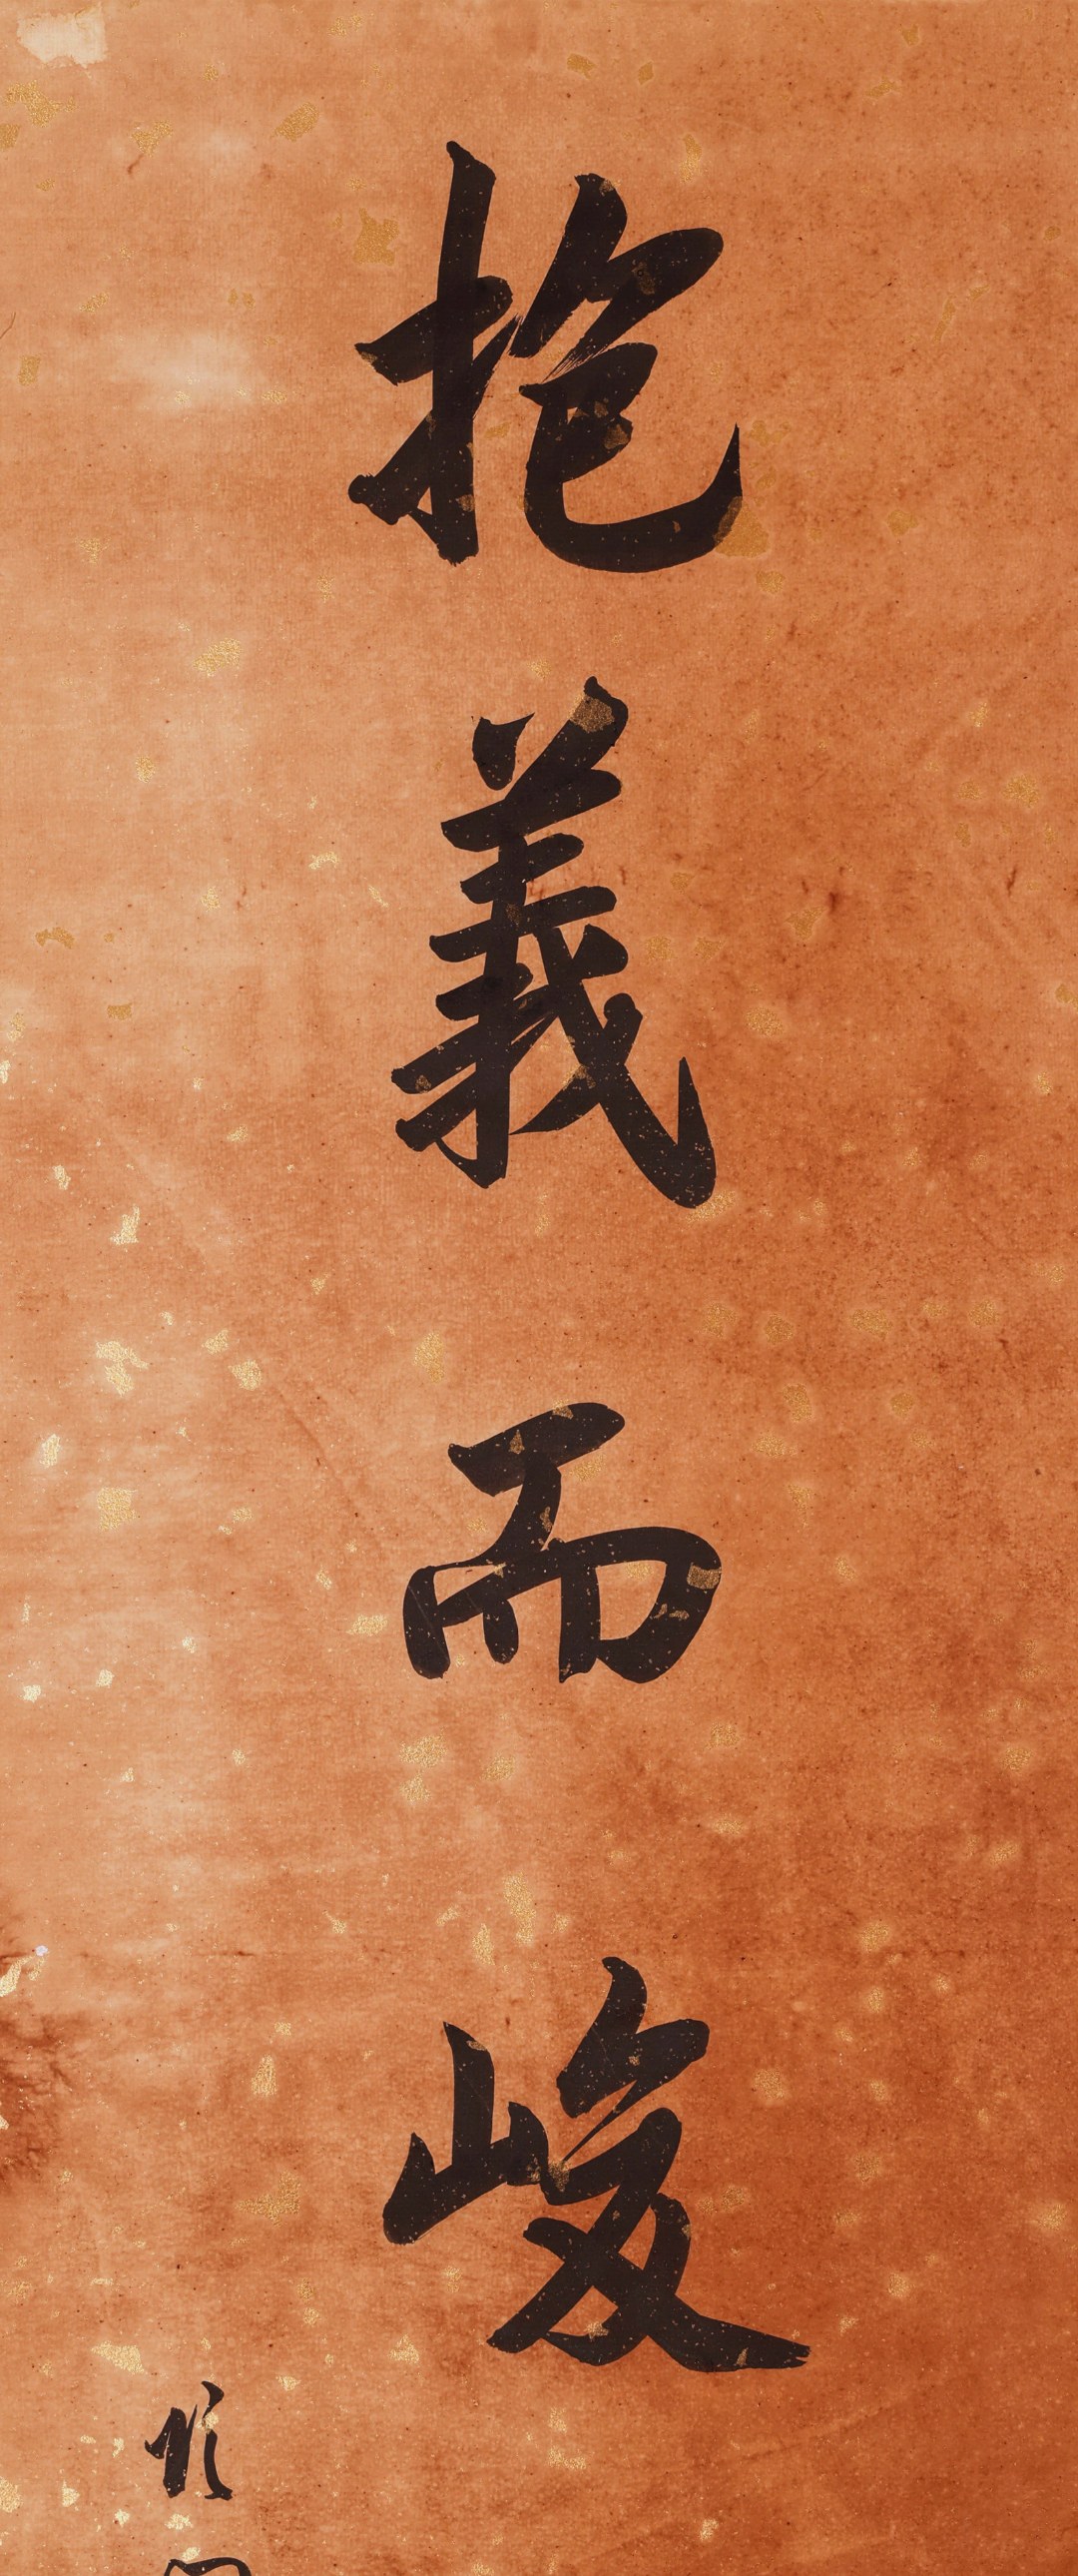 抱義而峻